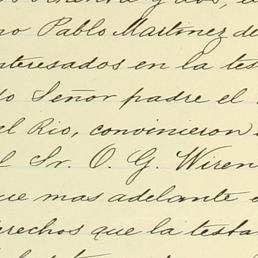 no Pablo Martinez de
interesados en la tes
do Señor padre el
el Rio, convinieron
l Sr. O. G. Wiren
ue mas adelante e
erechos que la testa